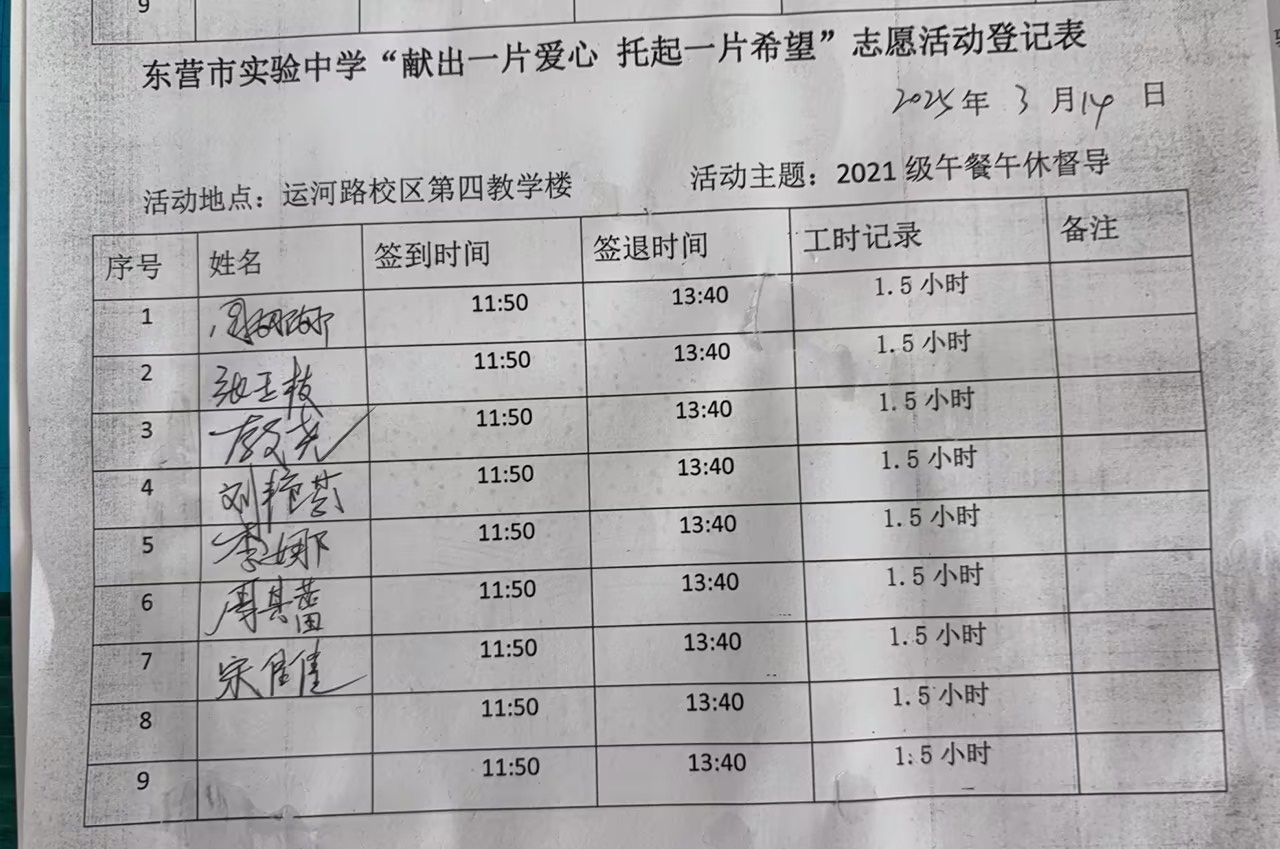 9
东营市实验中学“献出一片爱心 托起一片希望”志愿活动登记表
2025年 3 月14 日
活动地点：运河路校区第四教学楼 活动主题：2021 级午餐午休督导
序号 姓名 签到时间 签退时间 工时记录 备注
1 周娜娜 11:50 13:40 1.5 小时
2 张玉枝 11:50 13:40 1.5 小时
3 11:50 13:40 1.5 小时
4 刘艳芳 11:50 13:40 1.5 小时
5 李娜 11:50 13:40 1.5 小时
6 周其蕾 11:50 13:40 1.5 小时
7 宋佳佳 11:50 13:40 1.5 小时
8 11:50 13:40 1.5 小时
9 11:50 13:40 1:5 小时